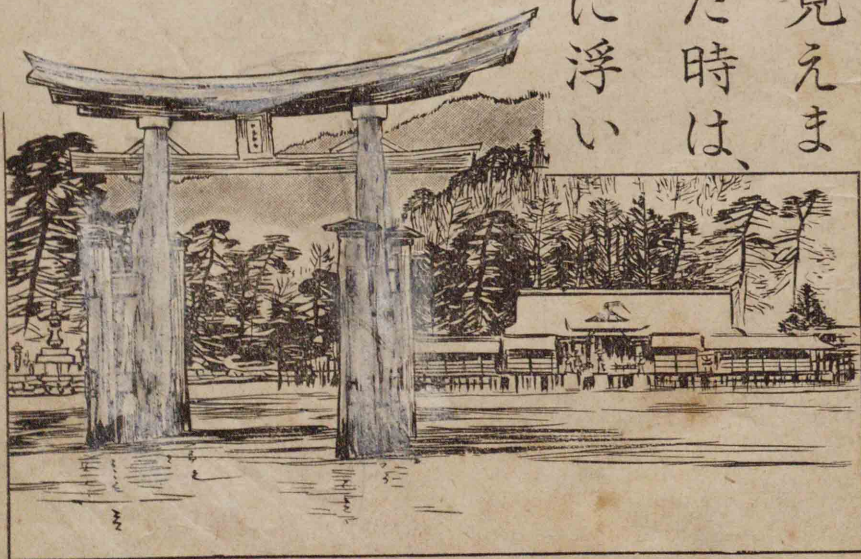 見えま
た時は、
に浮い